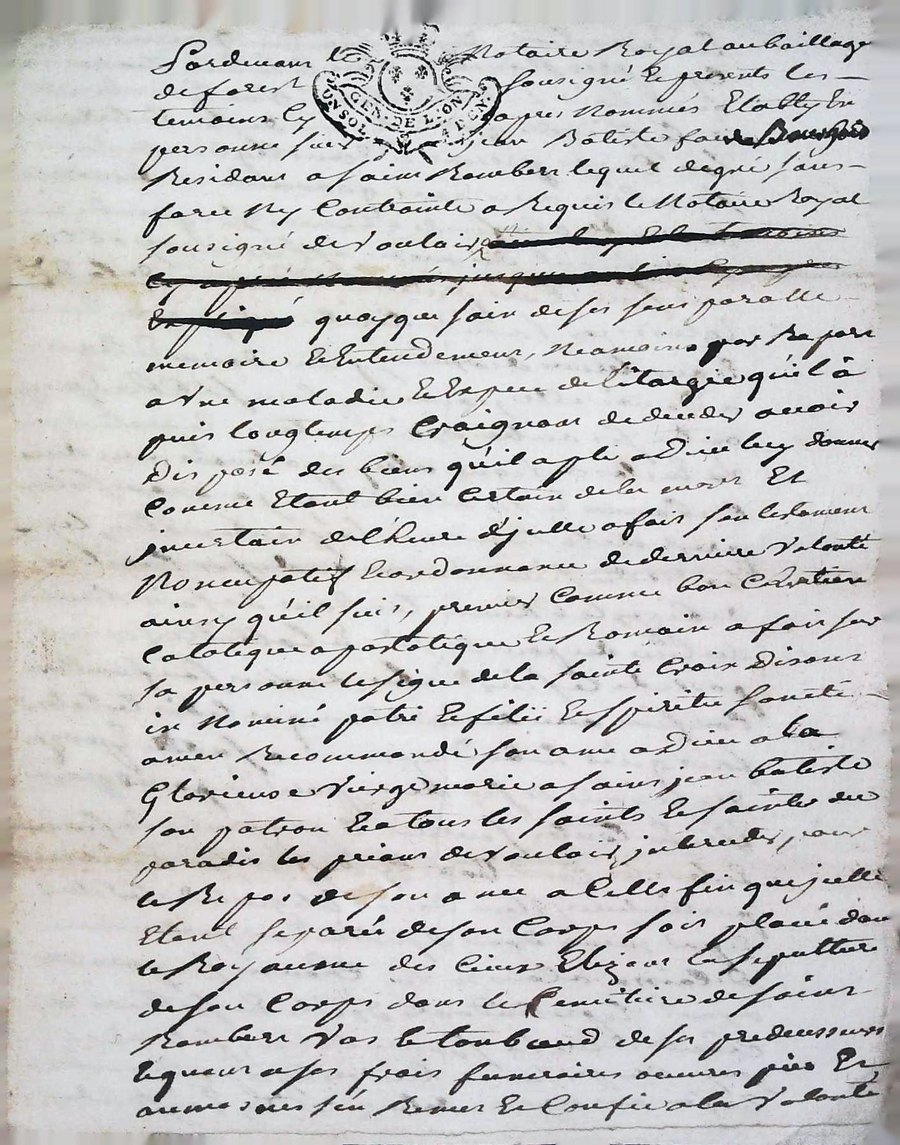 Pardevant le Notaire Royal au baillage
de forest soubsigné Et presents les
temoins Cy apres Nommés Etably En
personne sieur jean Batiste
GEN. DE LION
UN SOL 4 DENS
Residant a saint Rambert lequel de gré sans
force Ny Contrainte a Requis le Notaire Royal
sousigné de vouloir
Expliqué quoyque sain de ses sens parolle
memoire Et Entendement, Neamoins par Raport
a Une maladie Et Espece de l'étargie qu'il à
puis longtemps Craignant de deceder avoir
Disposé des biens qu'il a plu a Dieu luy donner
Comme Etant bien Certain de la mort Et
jncertain de l'heure d'jcelle a fait son testament
Noncupatif Et ordonnance de derniere Volonté
ainsy qu'il suit, premier Comme bon Chretien
Catolique apostolique Et Romain a fait sur
sa personne le signe de la sainte Croix Disant
in Nominé patri Et filii Et Spiritu Sancti
amen Recommandé son ame a Dieu a la
Glorieuse Vierge marie a saint jean batiste
son patron Et a tous les saints Et saintes du
paradis les priant de vouloir jnterceder pour
le Repos de son ame a Celle fin que jcelle
Etant separée de son Corps soit placée dans
le Royaume des Cieux Elizant la sepulture
de son Corps dans le Cemitiere de saint
Rambert Vas Et tombeaud de ses predecesseurs
Et quant a ses frais funeraires oeuvres pies Et
aumosnes s'en Remet Et Confie a la Volonté